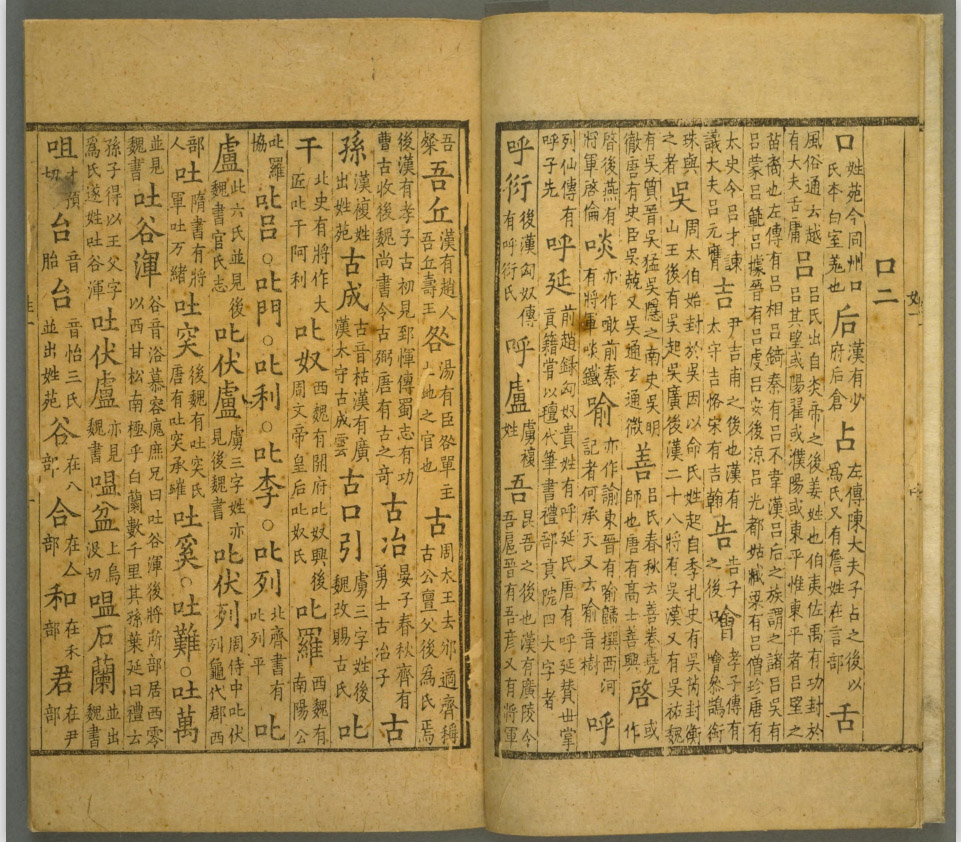 口二
口姓苑今同州口氏本白室羗也后漢有少府后倉占左傳陳大夫子占之後以爲氏又有詹姓在言部舌
風俗通云越有大夫舌庸吕吕氏出自炎帝之後姜姓也伯夷佐禹有功封於吕其望或陽翟或濮陽或東平惟東平者吕望之
苗裔也左傳有吕相吕錡秦有吕不韋漢吕后之族謂之諸吕吳有吕蒙吕範吕據晉有吕虔吕安後涼吕光都姑臧梁有吕僧珍唐有
太史令吕才諫議大夫吕元膺吉尹吉甫之後也漢有太守吉恪宋有吉翰告告子之後噲孝子傳有噲參鵲銜
珠與之者吳周太伯始封於吳因以命氏姓起自季扎史有吳芮封衡山王後有吳起吳廣後漢二十八將有吳漢又有吳祐魏
有吳質晉吳猛吳隱之南史吳明徹唐有史臣吳兢又吳通玄通微善吕氏春秋云善卷堯師也唐有高士善興啓或作
啓後燕有將軍啓倫啖亦作噉前秦有將軍啖鐵喻亦作諭東晉有喻歸撰西河記者何承天又云喻音樹呼
列仙傳有呼子先呼延前趙録匈奴貴姓有呼延氏唐有呼延賛世掌貢籍嘗以擅代筆書禮部貢院四大字者
呼衍後漢匈奴傳有呼衍氏呼盧虜複姓吾昆吾之後也漢有廣陵令吾扈晉有吾彦又有將軍
吾粲吾丘漢有趙人吾丘壽王咎湯有臣咎單主土地之官也古周太王去邠適齊稱古公亶父後爲氏焉
後漢有孝子古初見郅惲傳蜀志有功曹古牧後魏尚書令古弼唐有古之奇古冶晏子春秋齊有勇士古冶子古
孫漢複姓出姓苑古成古音枯漢有廣漢太守古成雲古口引虜三字姓後魏改賜古氏叱
干北史有將作大匠叱干阿利叱奴西魏有開府叱奴興後周文帝皇后叱奴氏叱羅西魏有南陽公
叱羅協叱吕○叱門○叱利○叱李○叱列北齊書有叱列平叱
盧此六氏並見後魏書官氏志叱伏盧虜三字姓亦見後魏書叱伏列周侍中叱伏列龜代郡西
部人吐隋書有將軍吐万緒吐突後魏有吐突氏唐有吐突承璀吐奚○吐難○吐萬
並見魏書吐谷渾谷音浴慕容廆庶兄曰吐谷渾後將所部居西零以西甘松南極乎白蘭數千里其孫葉延曰禮云
孫子得以王父字爲氏遂姓吐谷渾吐伏盧亦見魏書嗢盆上烏没切嗢石蘭並出魏書
咀才預切台音胎台音怡三氏並出姓苑谷在八部合在亼部和在禾部君在尹部